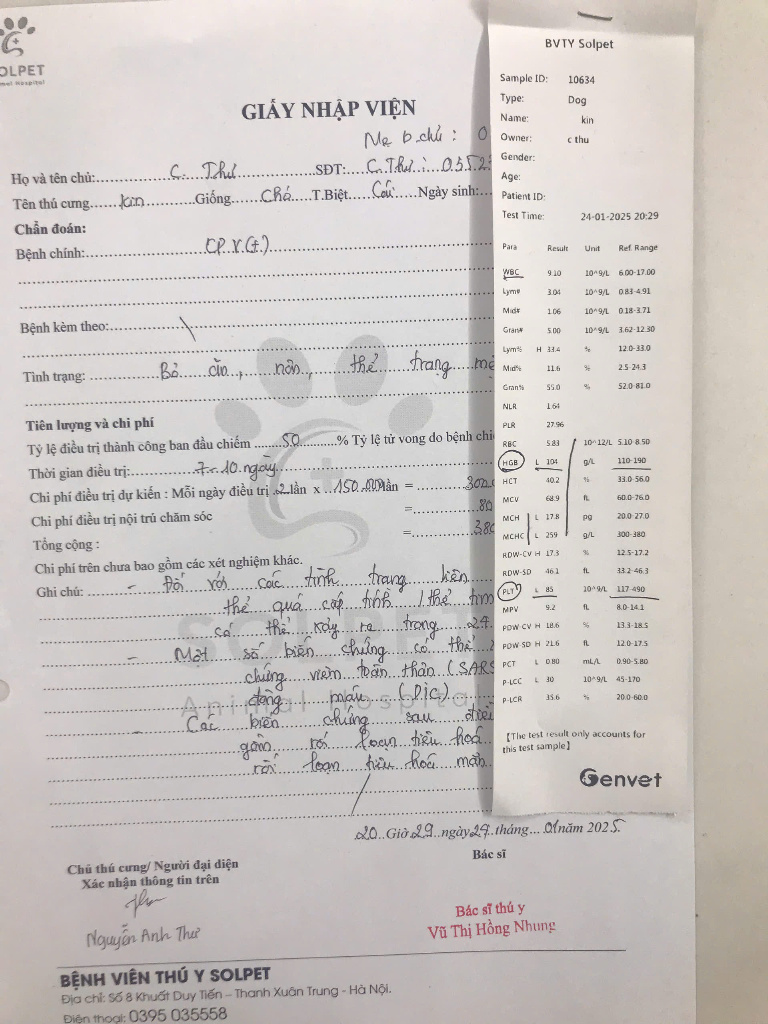 SOLPET
Animal Hospital
GIẤY NHẬP VIỆN
Mẹ b.chủ : 0
Họ và tên chủ: C. Thư SĐT: C. Thư : 0352
Tên thú cưng Kin Giống Chó T.Biệt Cái Ngày sinh:
Chẩn đoán:
Bệnh chính: CPV(+)
Bệnh kèm theo:
Tình trạng: Bỏ ăn, nôn, thể trạng
Tiên lượng và chi phí
Tỷ lệ điều trị thành công ban đầu chiếm 50 % Tỷ lệ tử vong do bệnh
Thời gian điều trị: 7-10 ngày
Chi phí điều trị dự kiến : Mỗi ngày điều trị 2 lần x 150.000 lần = 300
Chi phí điều trị nội trú chăm sóc = 80
Tổng cộng : = 380
Chi phí trên chưa bao gồm các xét nghiệm khác.
Ghi chú: - Đối với các tình trạng
thể quá cấp tính / thể tim
có thể xảy ra trong 24
- Một số biến chứng có thể
chứng viêm toàn thân (SARS
đông máu (DIC)
- Các biến chứng sau
gồm rối loạn tiêu hoá
rối loạn tiêu hoá
SOLPET
Animal Hospital
20 Giờ 29 ngày 24 tháng 01 năm 2025
Chủ thú cưng/ Người đại diện
Xác nhận thông tin trên
Bác sĩ
Nguyễn Anh Thư
Bác sĩ thú y
Vũ Thị Hồng Nhung
BỆNH VIÊN THÚ Y SOLPET
Địa chỉ: Số 8 Khuất Duy Tiến – Thanh Xuân Trung - Hà Nội.
Điện thoại: 0395 035558
BVTY Solpet
Sample ID: 10634
Type: Dog
Name: kin
Owner: c thu
Gender:
Age:
Patient ID:
Test Time: 24-01-2025 20:29
Para Result Unit Ref. Range
WBC 9.10 10^9/L 6.00-17.00
Lym# 3.04 10^9/L 0.83-4.91
Mid# 1.06 10^9/L 0.18-3.71
Gran# 5.00 10^9/L 3.62-12.30
Lym% H 33.4 % 12.0-33.0
Mid% 11.6 % 2.5-24.3
Gran% 55.0 % 52.0-81.0
NLR 1.64
PLR 27.96
RBC 5.83 10^12/L 5.10-8.50
HGB L 104 g/L 110-190
HCT 40.2 % 33.0-56.0
MCV 68.9 fL 60.0-76.0
MCH L 17.8 pg 20.0-27.0
MCHC L 259 g/L 300-380
RDW-CV H 17.3 % 12.5-17.2
RDW-SD 46.1 fL 33.2-46.3
PLT L 85 10^9/L 117-490
MPV 9.2 fL 8.0-14.1
PDW-CV H 18.6 % 13.3-18.5
PDW-SD H 21.6 fL 12.0-17.5
PCT L 0.80 mL/L 0.90-5.80
P-LCC L 30 10^9/L 45-170
P-LCR 35.6 % 20.0-60.0
【The test result only accounts for
this test sample】
Genvet